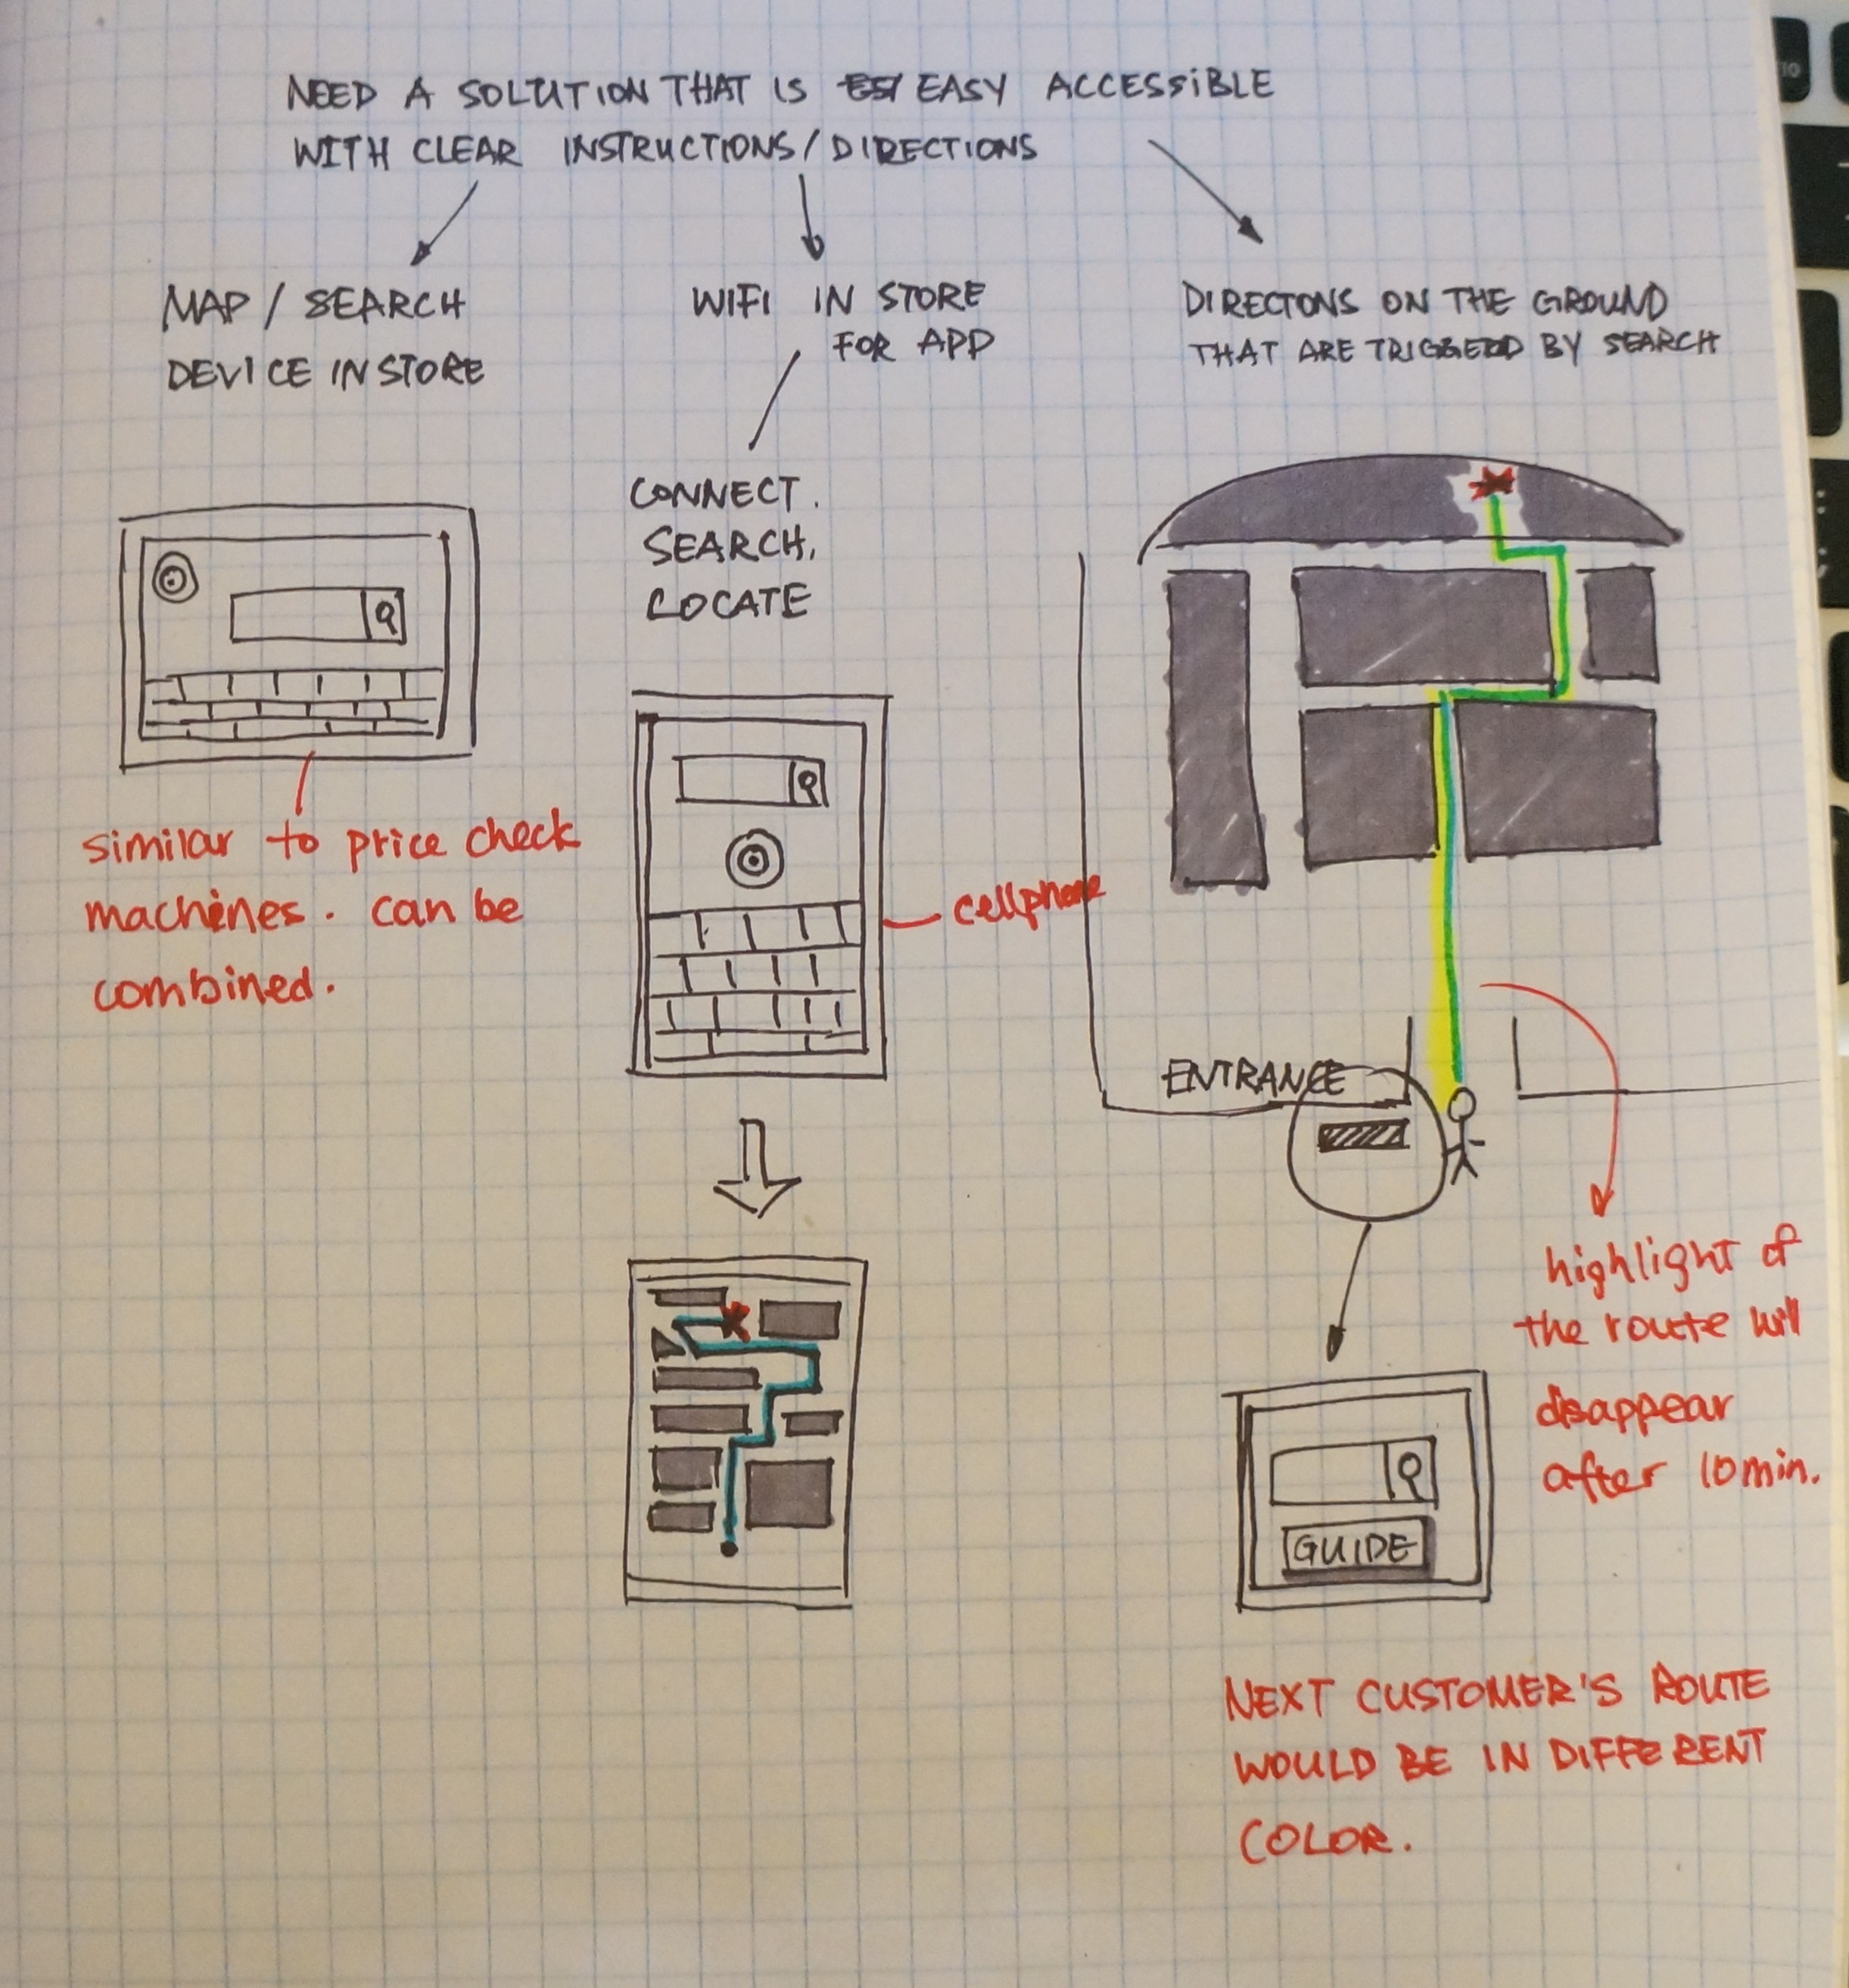 NEED A SOLUTION THAT IS EASY ACCESSIBLE
WITH CLEAR INSTRUCTIONS/DIRECTIONS
MAP / SEARCH
DEVICE IN STORE
similar to price check
machines. can be
combined.
WIFI IN STORE
FOR APP
CONNECT.
SEARCH,
LOCATE
cellphone
DIRECTONS ON THE GROUND
THAT ARE TRIGGERD BY SEARCH
ENTRANCE
highlight of
the route will
disappear
after 10min.
GUIDE
NEXT CUSTOMER'S ROUTE
WOULD BE IN DIFFERENT
COLOR.